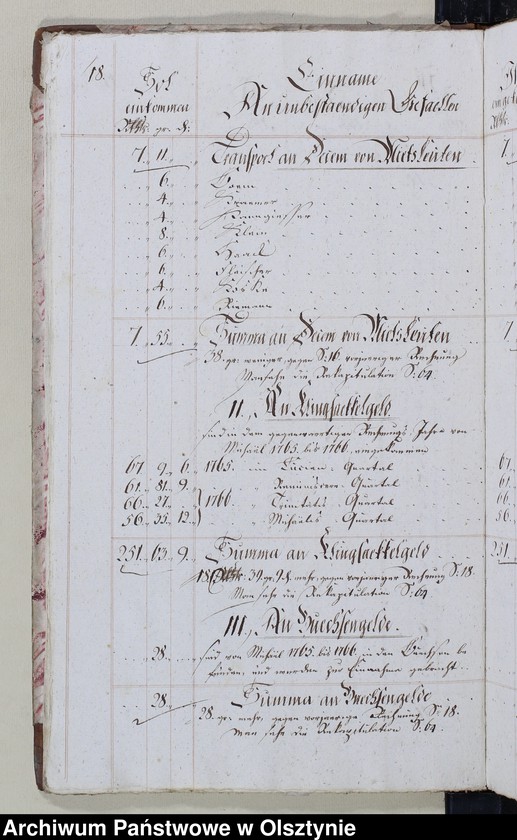 18.
Soll
einkommen
Rthlr. gr. ₰.
Einname
An unbestaendigen Gefaellen
7. 11. Transport an Deiem von Mietsleuten
6.
4. Kraemer
4. Kanngiesser
8. Klein
6. Haack
6. Fleischer
4. Koske
6. Riemann
7. 55. Summa an Deiem von Mietsleuten
38. gr. weniger, gegen S: 16. vorjaeriger Rechnung
Man sehe die Rekapitulation S: 64.
II., An Klingsaekkelgeld
sind in dem gegenwaertigen Rechnungs Jahre von
Michael 1765. bis 1766. eingekommen
67. 9. 6. 1765. im Luciae Quartal
61. 81. 9. Reminiscere Quartal
66. 27. 1766. Trinitatis Quartal
56. 35. 12. Michaelis Quartal
251. 63. 9. Summa an Klingsaekkelgeld
18 Rthlr. 34. gr. 9 ₰. mehr, gegen vorjaeriger Rechnung S: 18.
Man sehe die Rekapitulation S: 64
III., An Buechsengelde.
28. sind von Michael 1765. bis 1766. in den Buechsen be
funden, und werden zur Einnahme gebracht
28. Summa an Buechsengelde
28. gr. mehr, gegen vorjaerige Rechnung S: 18.
Man sehe die Rekapitulation S: 64.
Archiwum Państwowe w Olsztynie